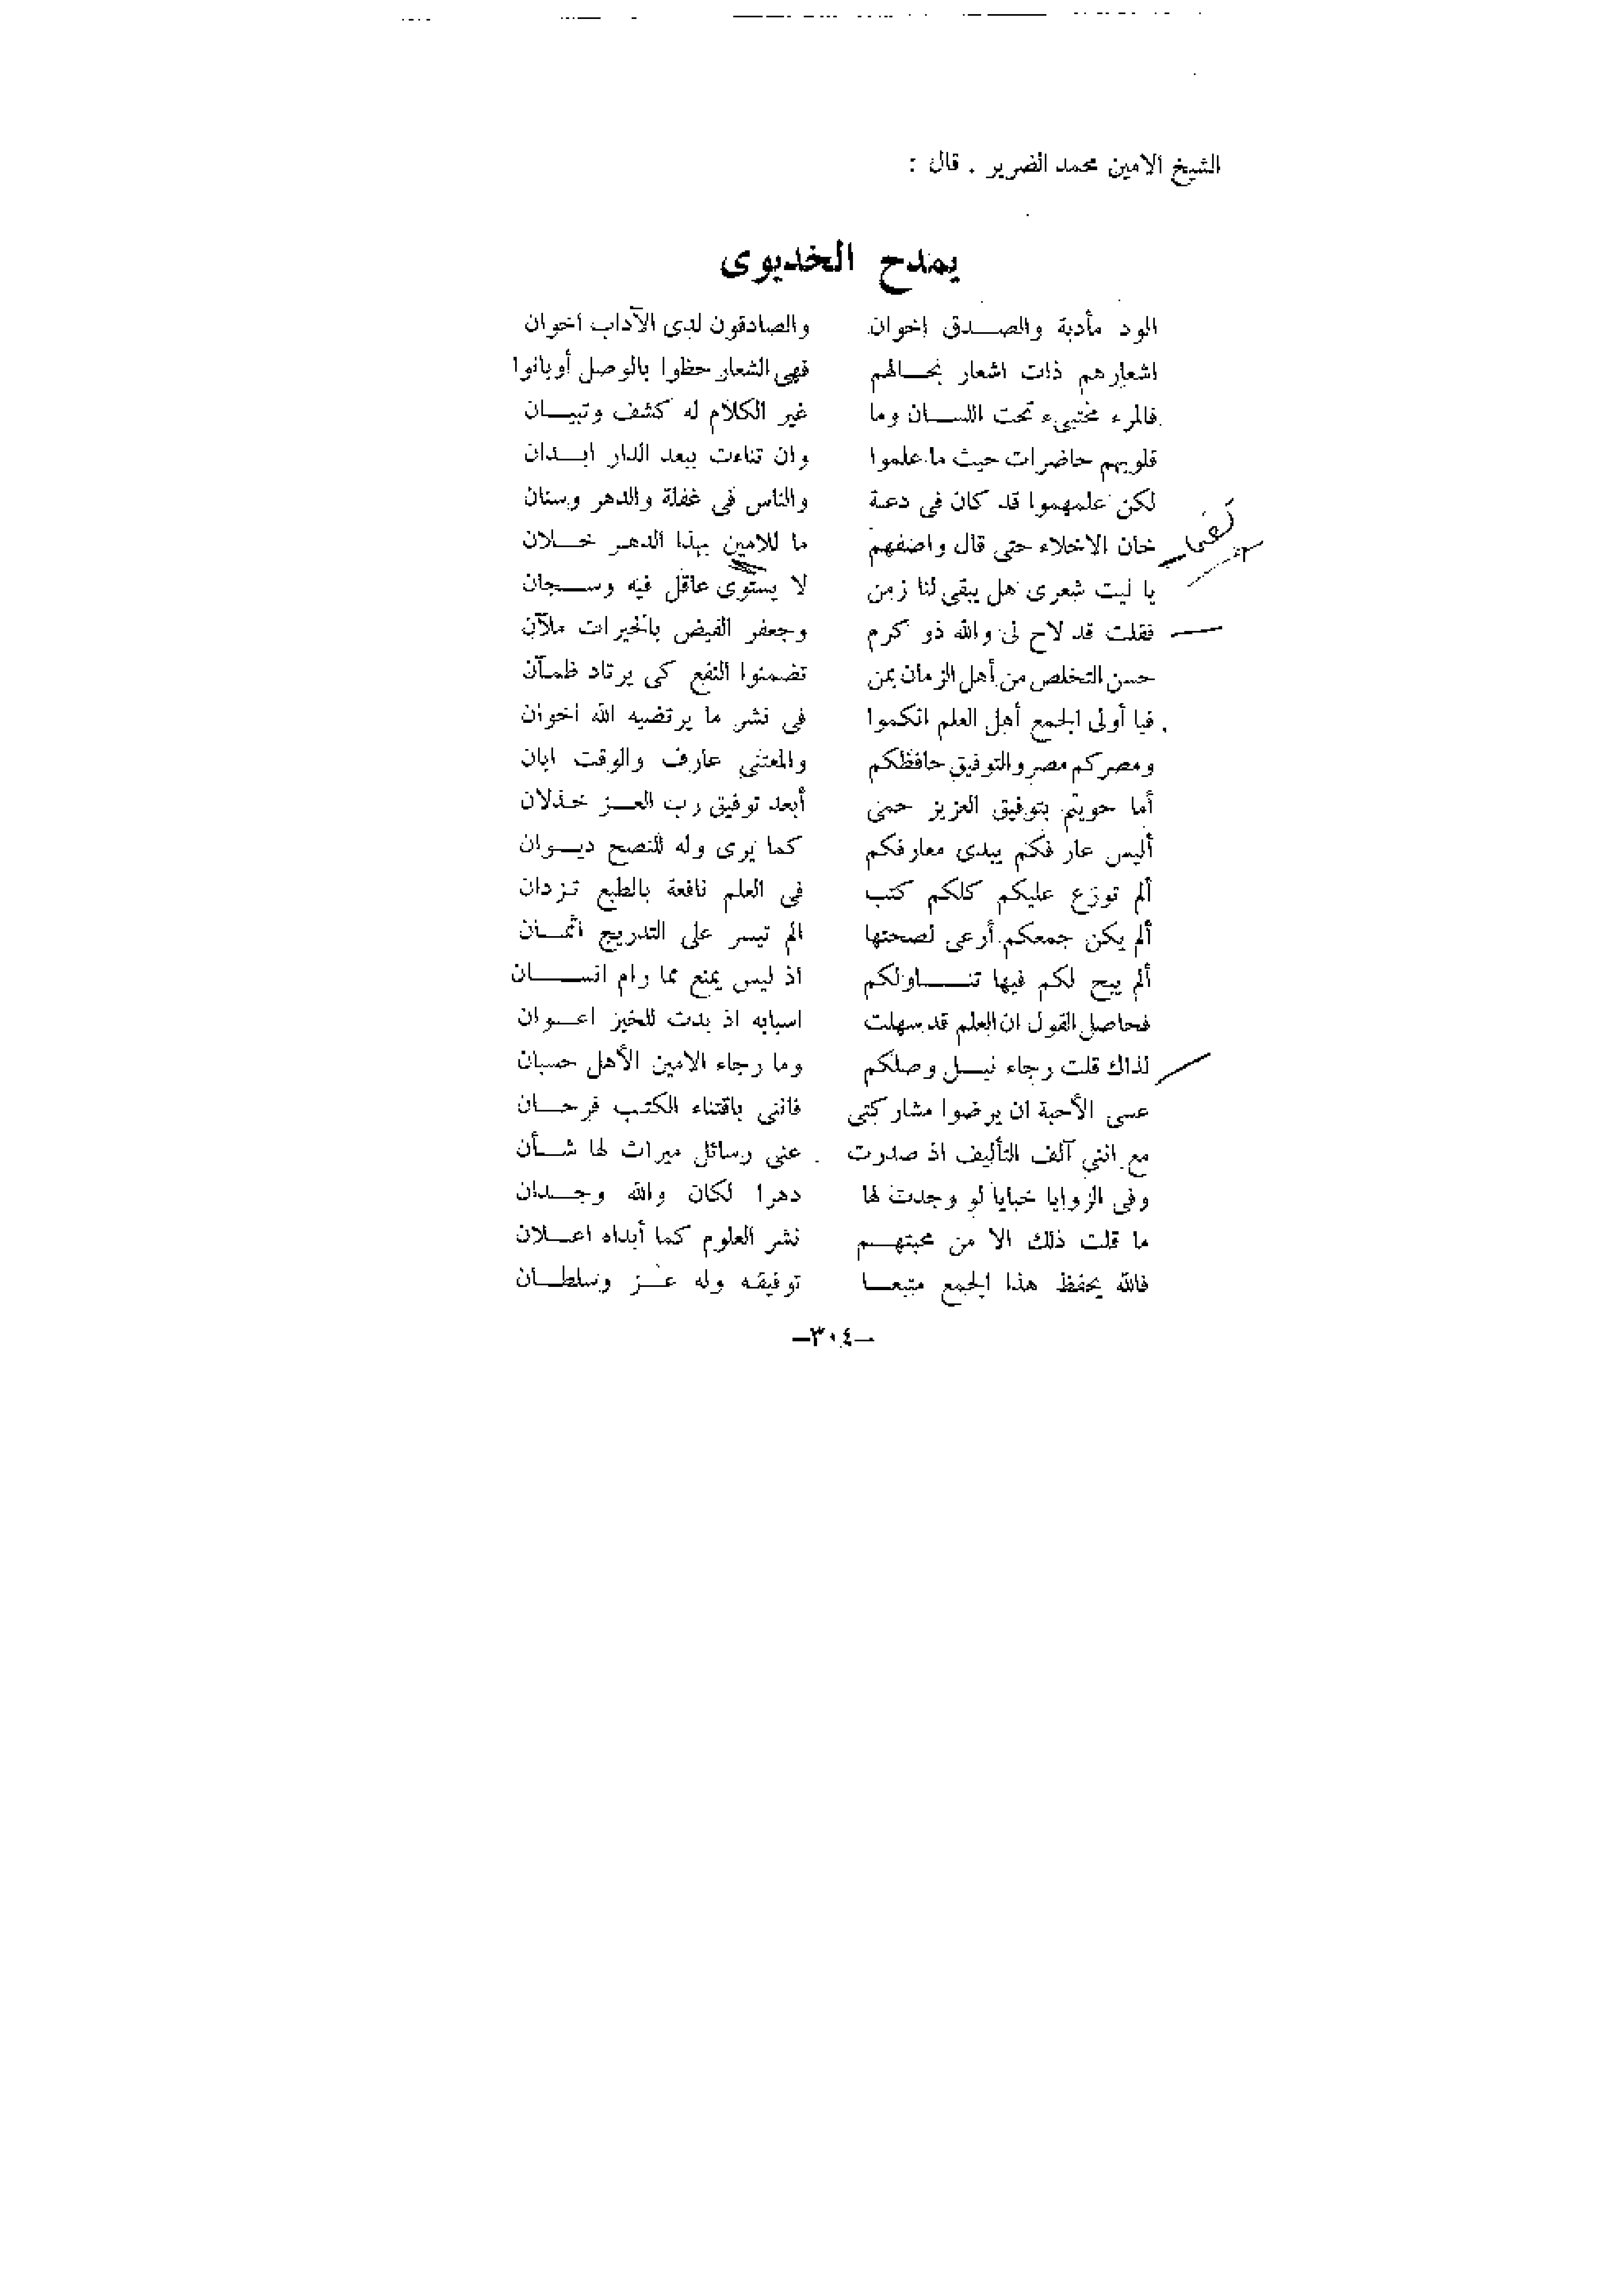 الشيخ الامين محمد الضرير . قال :
يمدح الخديوى
الود مأدبة والصدق اخوان والصادقون لدى الآداب اخوان
اشعارهم ذات اشعار بحالهم فهى الشعار حظوا بالوصل أو بانوا
فالمرء مختبىء تحت اللسان وما غير الكلام له كشف وتبيان
قلوبهم حاضرات حيث ما علموا وان تناءت ببعد الدار ابدان
لكن علمهموا قد كان فى دعة والناس فى غفلة والدهر وسنان
خان الاخلاء حتى قال واضفهم ما للامين بهذا الدهر خلان
يا ليت شعرى هل يبقى لنا زمن لا يستوى عاقل فيه وسجان
فقلت قد لاح لى والله ذو كرم وجعفر الفيض بالخيرات ملآن
حسن التخلص من أهل الزمان بمن تضمنوا النفع كى يرتاد ظمآن
فيا أولى الجمع أهل العلم انكموا فى نشر ما يرتضيه الله اخوان
ومصركم مصر والتوفيق حافظكم والمعتنى عارف والوقت ابان
أما حويتم بتوفيق العزيز حمى أبعد توفيق رب العز خذلان
أليس عارفكم يبدى معارفكم كما يرى وله للنصح ديوان
ألم توزع عليكم كلكم كتب فى العلم نافعة بالطبع تزدان
ألم يكن جمعكم أرعى لصحتها الم تيسر على التدريج اثمان
ألم يبح لكم فيها تناولكم اذ ليس يمنع مما رام انسان
فحاصل القول ان العلم قد سهلت اسبابه اذ بدت للخير اعوان
لذاك قلت رجاء نيل وصلكم وما رجاء الامين الأهل حسبان
عسى الأحبة ان يرضوا مشاركتى فاننى باقتناء الكتب فرحان
مع اننى آلف التأليف اذ صدرت عنى رسائل ميراث لها شأن
وفى الزوايا خبايا لو وجدت لها دهرا لكان والله وجدان
ما قلت ذلك الا من محبتهم نشر العلوم كما أبداه اعلان
فالله يحفظ هذا الجمع متبعا توفيقه وله عز وسلطان
–٣٠٤–